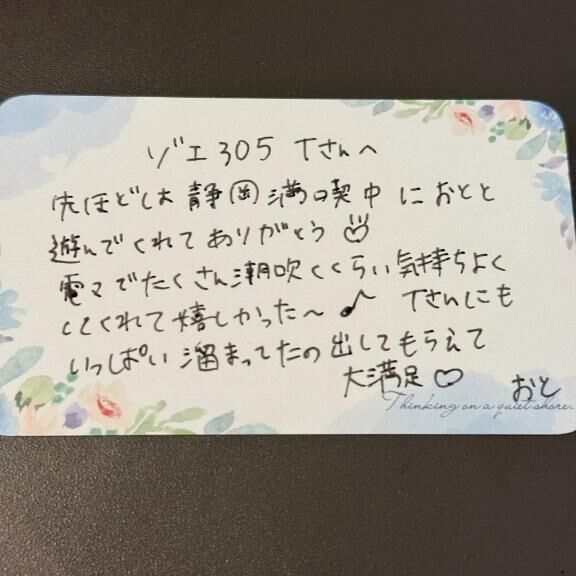 ゾエ305 Tさんへ
先ほどは静岡満喫中におとと
遊んでくれてありがとう♡
電マでたくさん潮吹くくらい気持ちよく
してくれて嬉しかった〜♪ Tさんにも
いっぱい溜まってたの出してもらえて
大満足♡ おと
Thinking on a quiet shore.